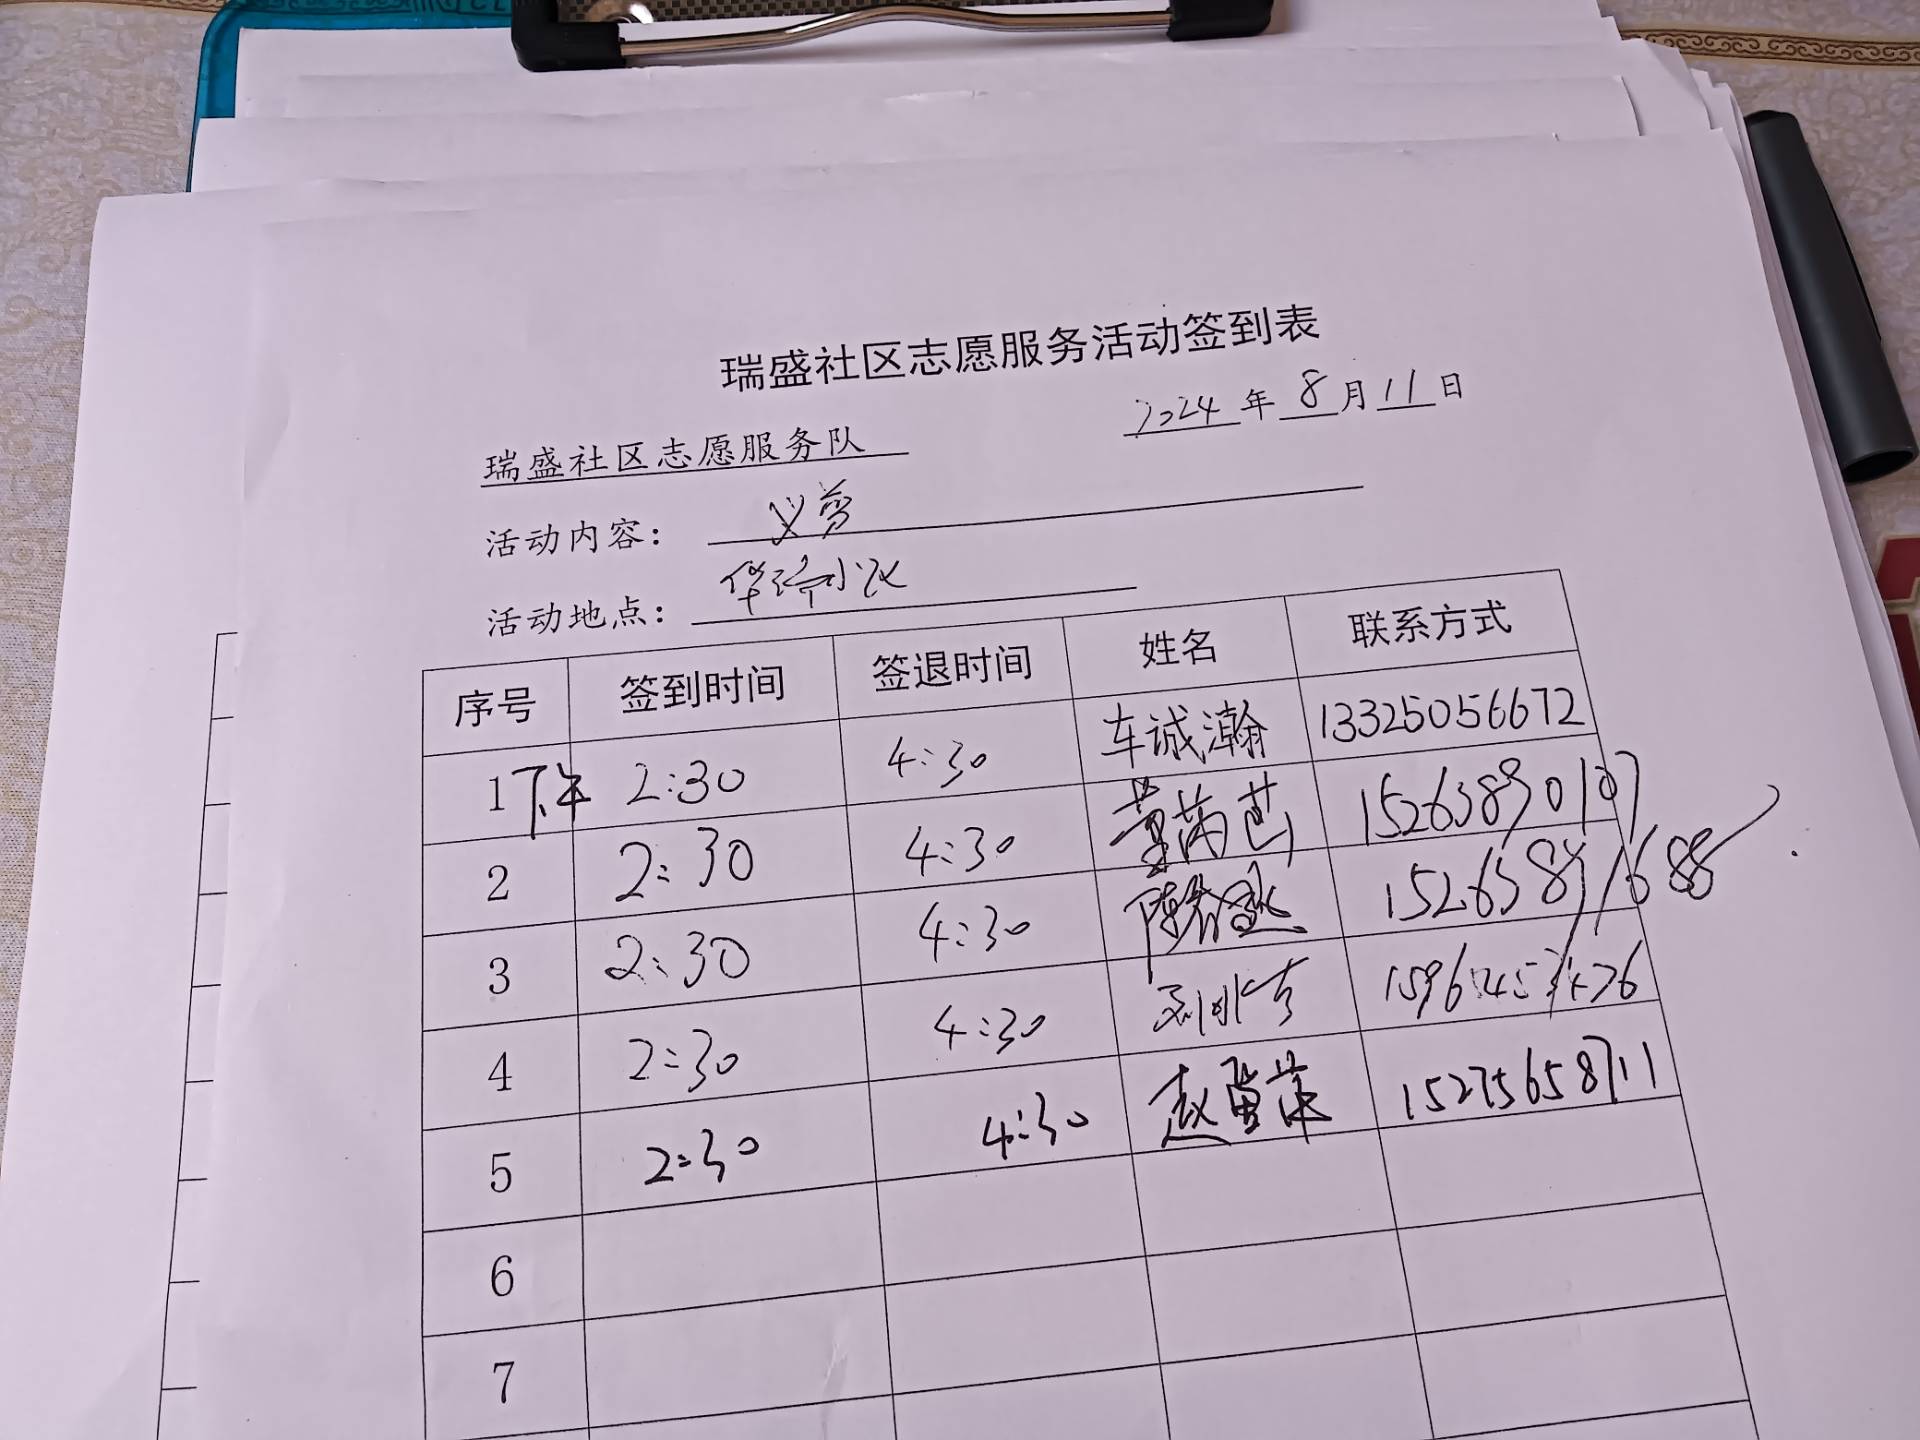 瑞盛社区志愿服务活动签到表
2024 年 8 月 11 日
瑞盛社区志愿服务队
活动内容: 义剪
活动地点: 小区
序号 签到时间 签退时间 姓名 联系方式
1 下午 2:30 4:30 车诚瀚 13325056672
2 2:30 4:30 15263890107
3 2:30 4:30
4 2:30 4:30
5 2:30 4:30 15275658711
6
7